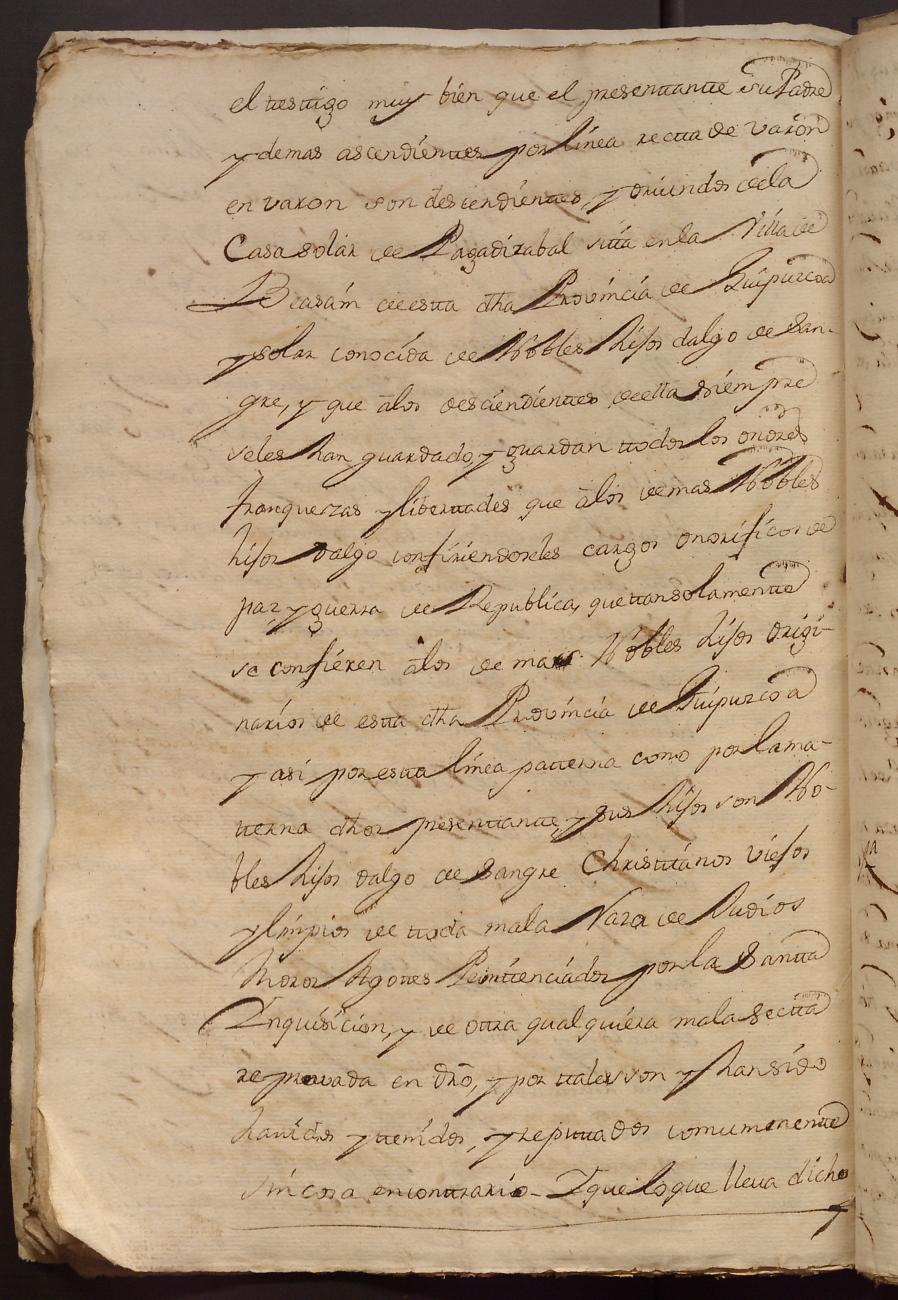 el ttesttigo muy bien que el presenttantte su Padre
y demas ascendienttes por linea rectta de varon
en varon son descendienttes, y oriundos de la
Casa solar de Pagadizabal sitta en la Villa de
Beasaím de estta dha Provincia de Guipuzcoa
y solar conocida de Nobles hijos dalgo de San-
gre, y que a los desciendienttes de ella siempre
se les han guardado, y guardan ttodos los onores
franquezas y liberttades que a los demas Nobles
hijos dalgo confiriendoseles cargos onorificos de
paz, y guerra de Republica, que ttan solamentte
se confieren a los de mas Nobles hijos origi-
narios de estta dha Provincia de Guipuzcoa
y asi por estta linea patterna como por la ma-
tterna dhos presenttantte, y sus hijos son No-
bles hijos dalgo de Sangre Christtianos viejos
y limpios de ttoda mala Raza de Judios
Moros Agottes Penittenciados por la Santta
Inquisicion, y de ottra qualquiera mala Sectta
reprovada en dro, y por ttales son y han sido
havidos y ttenidos, y reputtados comunmentte
sin cosa en conttrario- Y que lo que lleva dicho